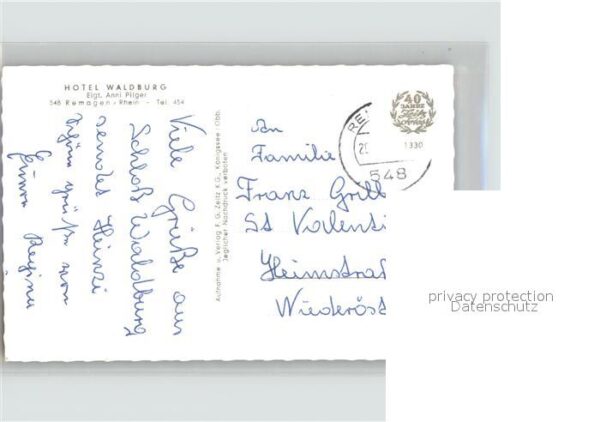 HOTEL WALDBURG
Eigt. Anni Pilger
548 Remagen/Rhein - Tel. 454
Viele Grüße aus
Schloß Waldburg
sendet Heinzi
von
Aufnahme u. Verlag F. G. Zeitz K.G., Königssee/Obb.
Jeglicher Nachdruck verboten
40
JAHRE
RE
1330
548
An
Familie
Franz Grill
St Valenti
Heimstraß
Niederöst
privacy protection
Datenschutz